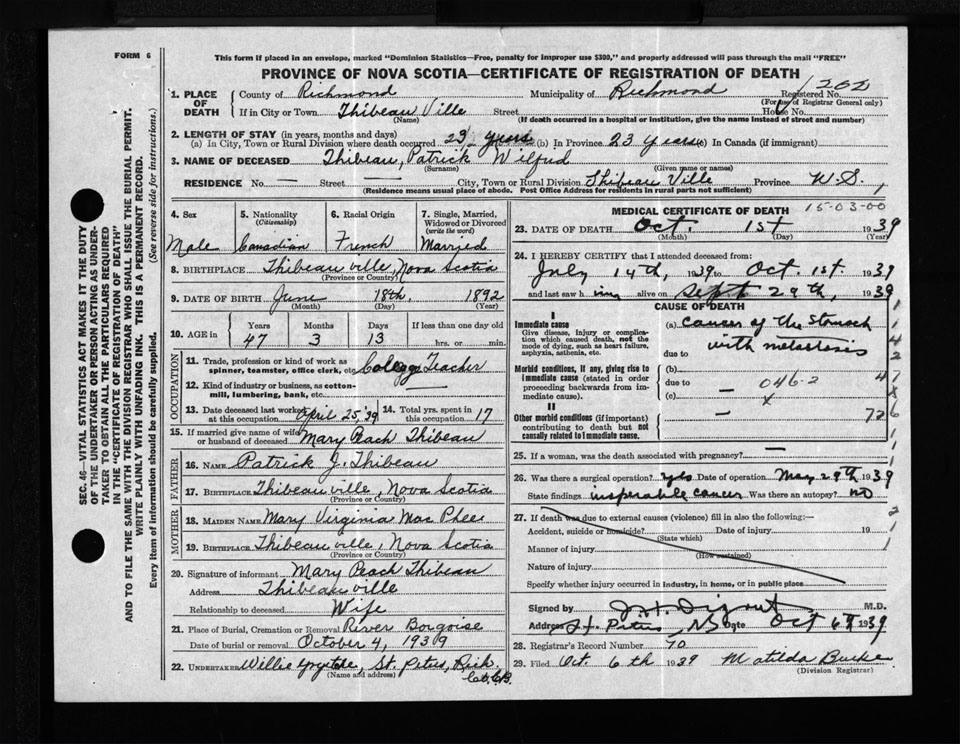 FORM 6
This form if placed in an envelope, marked "Dominion Statistics—Free, penalty for improper use $300," and properly addressed will pass through the mail "FREE"
PROVINCE OF NOVA SCOTIA—CERTIFICATE OF REGISTRATION OF DEATH
SEC. 46—VITAL STATISTICS ACT MAKES IT THE DUTY
OF THE UNDERTAKER OR PERSON ACTING AS UNDER-
TAKER TO OBTAIN ALL THE PARTICULARS REQUIRED
IN THE "CERTIFICATE OF REGISTRATION OF DEATH"
AND TO FILE THE SAME WITH THE DIVISION REGISTRAR WHO SHALL ISSUE THE BURIAL PERMIT.
WRITE PLAINLY WITH UNFADING INK. THIS IS A PERMANENT RECORD.
Every item of information should be carefully supplied. (See reverse side for instructions.)
1. PLACE OF DEATH
County of Richmond Municipality of Richmond Registered No. 202
(For use of Registrar General only)
If in City or Town Thibeau Ville Street House No.
(Name) (If death occurred in a hospital or institution, give the name instead of street and number)
2. LENGTH OF STAY (in years, months and days)
(a) In City, Town or Rural Division where death occurred 23 years (b) In Province 23 Years (c) In Canada (if immigrant)
3. NAME OF DECEASED Thibeau, Patrick Wilfud
(Surname) (Given name or names)
RESIDENCE No. — Street — City, Town or Rural Division Thibeau Ville Province N.S.
(Residence means usual place of abode. Post Office Address for residents in rural parts not sufficient)
4. Sex 5. Nationality 6. Racial Origin 7. Single, Married,
(Citizenship) Widowed or Divorced
(write the word)
Male Canadian French Married
8. BIRTHPLACE Thibeauville, Nova Scotia
(Province or Country)
9. DATE OF BIRTH June 18th. 1892
(Month) (Day) (Year)
10. AGE in Years Months Days If less than one day old
47 3 13 hrs. or min.
OCCUPATION
11. Trade, profession or kind of work as
spinner, teamster, office clerk, etc. College Teacher
12. Kind of industry or business, as cotton-
mill, lumbering, bank, etc. —
13. Date deceased last worked at this occupation April 25 '39 14. Total yrs. spent in this occupation 17
15. If married give name of wife or husband of deceased Mary Peach Thibeau
FATHER
16. NAME Patrick J. Thibeau
17. BIRTHPLACE Thibeauville, Nova Scotia
(Province or Country)
MOTHER
18. MAIDEN NAME Mary Virginia Mac Phee
19. BIRTHPLACE Thibeauville, Nova Scotia
(Province or Country)
20. Signature of informant Mary Peach Thibeau
Address Thibeauville
Relationship to deceased Wife
21. Place of Burial, Cremation or Removal River Borgoise
Date of burial or removal October 4, 1939
22. UNDERTAKER Willie St. Peters, Rich.
(Name and address) Co. C.B.
MEDICAL CERTIFICATE OF DEATH 15-03-00
23. DATE OF DEATH Oct. 1st 1939
(Month) (Day) (Year)
24. I HEREBY CERTIFY that I attended deceased from:
July 14th, 1939 to Oct. 1st. 1939
and last saw him alive on Sept 29th, 1939
CAUSE OF DEATH
I
Immediate cause
Give disease, injury or complica-
tion which caused death, not the
mode of dying, such as heart failure,
asphyxia, asthenia, etc.
(a) Cancer of the Stomach
due to with metastasis
Morbid conditions, if any, giving rise to
immediate cause (stated in order
proceeding backwards from im-
mediate cause).
(b)
due to — 046-2
(c) x
II
Other morbid conditions (if important)
contributing to death but not
causally related to I immediate cause.
— 72
25. If a woman, was the death associated with pregnancy? —
26. Was there a surgical operation? Yes Date of operation May 29th 1939
State findings inoperable cancer Was there an autopsy? no
27. If death was due to external causes (violence) fill in also the following:—
Accident, suicide or homicide? Date of injury 19
(State which)
Manner of injury
(How sustained)
Nature of injury
Specify whether injury occurred in industry, in home, or in public place
Signed by M.D.
Address St. Peters, NS Date Oct 6th 1939
28. Registrar's Record Number 70
29. Filed Oct. 6th 1939 Matilda Burke
(Division Registrar)